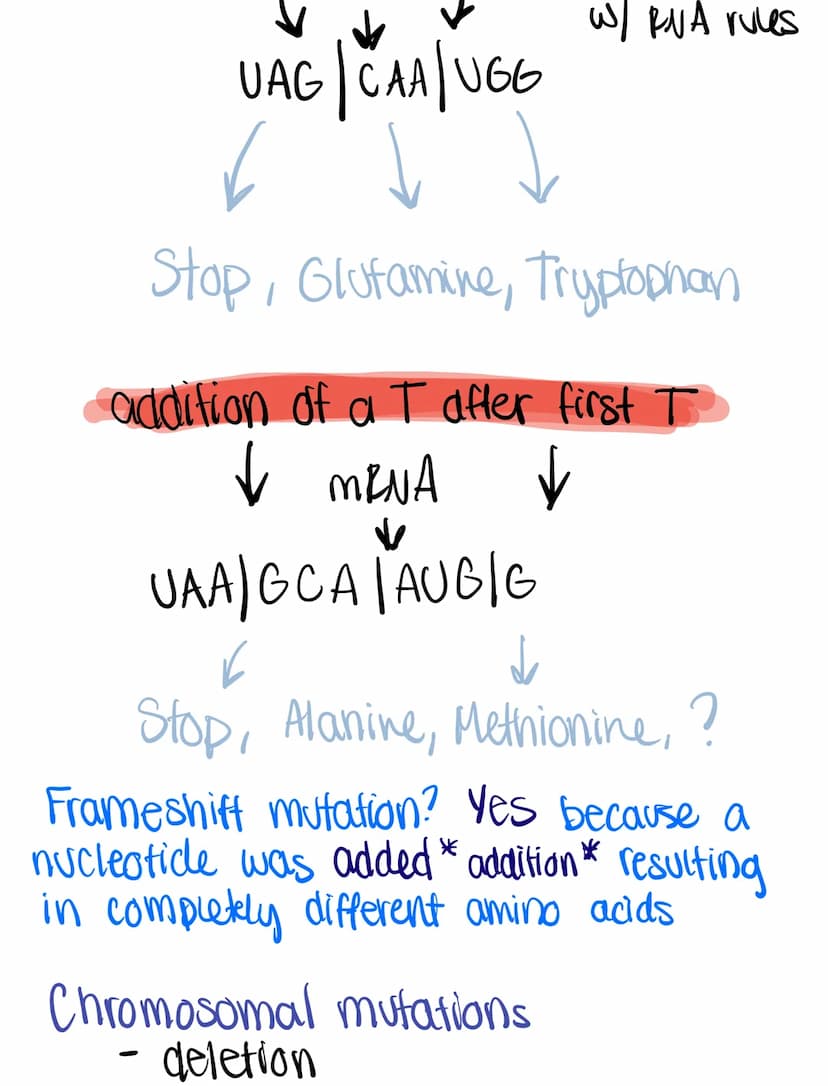 w/ RNA rules
UAG|CAA|UGG
Stop, Glutamine, Tryptophan
addition of a T after first T
mRNA
UAA|GCA|AUG|G
Stop, Alanine, Methionine, ?
Frameshift mutation? Yes because a
nucleotide was added * addition * resulting
in completely different amino acids
Chromosomal mutations
- deletion